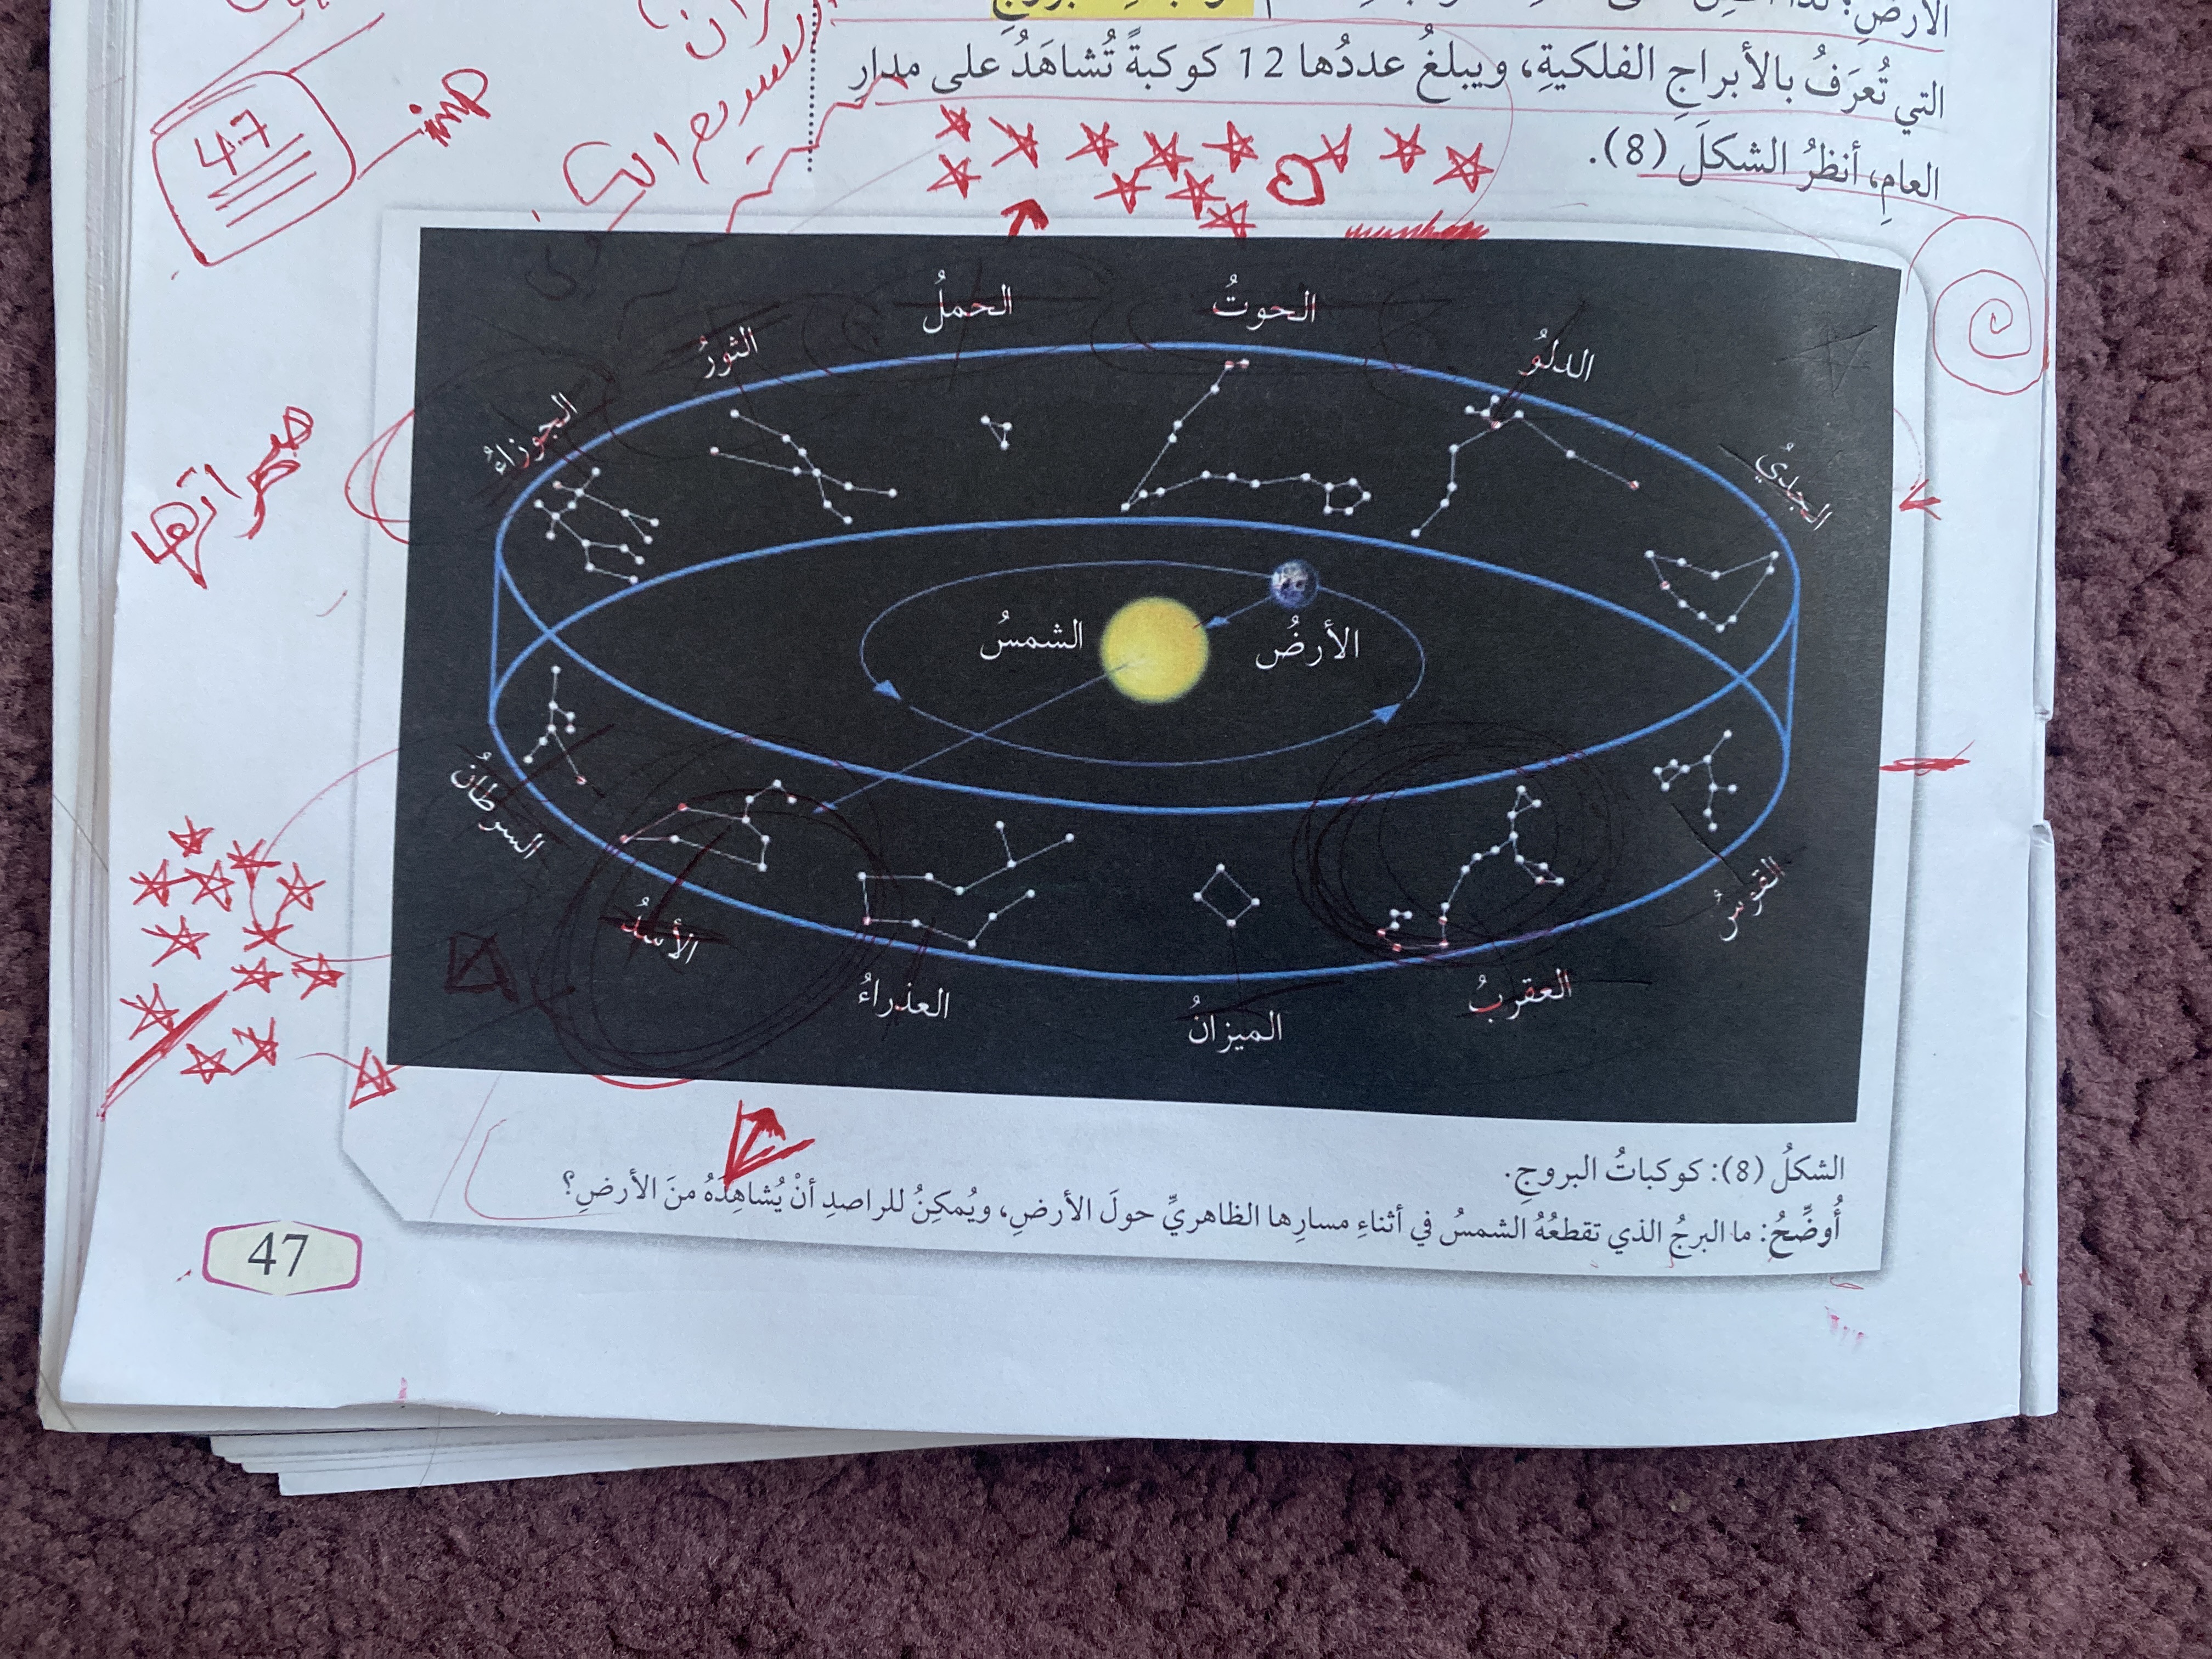 الأرضِ؛
التي تُعرَفُ بالأبراجِ الفلكيةِ، ويبلغُ عددُها 12 كوكبةً تُشاهَدُ على مدارِ
العامِ، أنظرُ الشكلَ (8).
47
مهم
الحملُ
الحوتُ
الثورُ
الدلوُ
الجوزاءُ
الجديُ
الشمسُ
الأرضُ
السرطانُ
القوسُ
الأسدُ
العذراءُ
الميزانُ
العقربُ
الشكلُ (8): كوكباتُ البروجِ.
أُوضِّحُ: ما البرجُ الذي تقطعُهُ الشمسُ في أثناءِ مسارِها الظاهريِّ حولَ الأرضِ، ويُمكِنُ للراصدِ أنْ يُشاهِدَهُ منَ الأرضِ؟
47